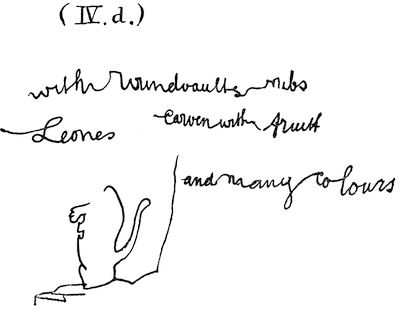 (IV.d.)
with ribs
Leones carven with
and many colours